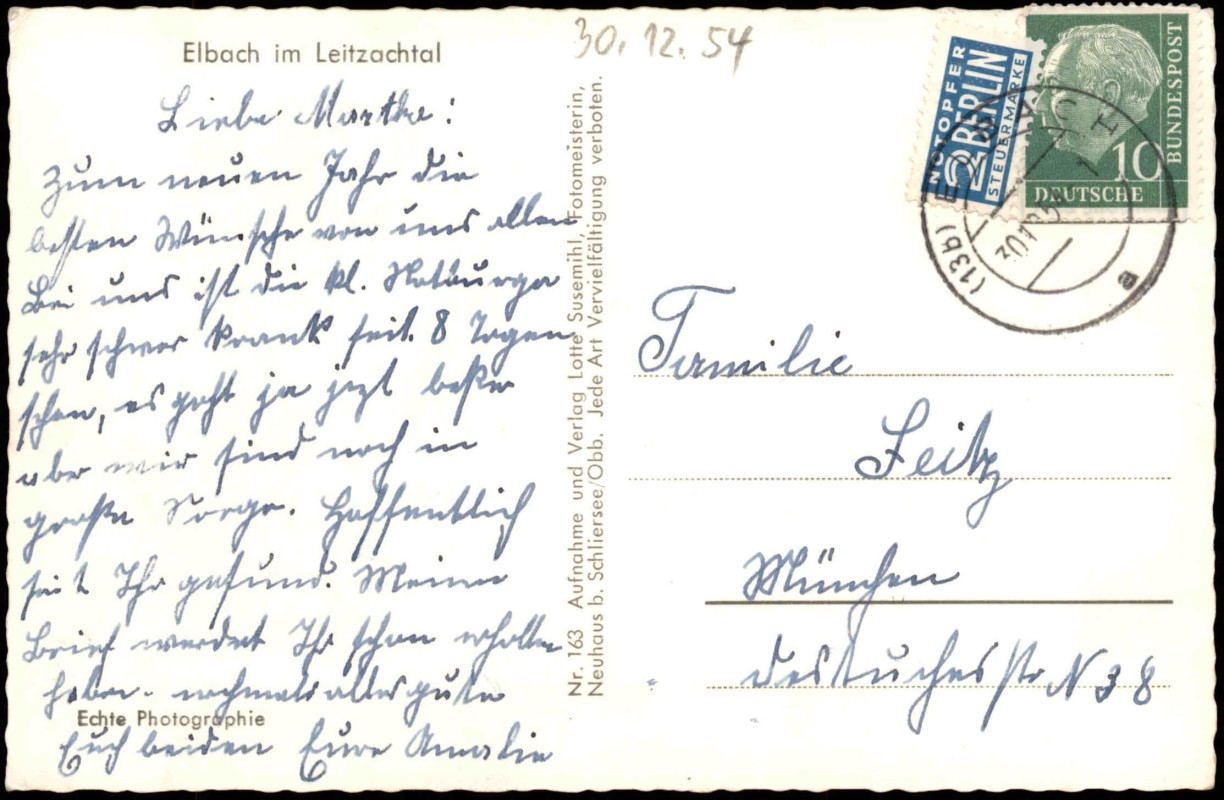 Elbach im Leitzachtal
30.12.54
Liebe Martha!
Zum neuen Jahr die
besten Wünsche von uns allen
Bei uns ist die kl. Notburga
sehr schwer krank seit 8 Tagen
schon, es geht ja jezt besser
aber wir sind noch in
großer Sorge. Hoffentlich
seit Ihr gesund. Meinen
Brief werdet Ihr schon erhalten
haben. nochmals alles gute
Echte Photographie
Euch beiden Eure Annalie
Nr. 163 Aufnahme und Verlag Lotte Susemihl, Fotomeisterin,
Neuhaus b. Schliersee/Obb. Jede Art Vervielfältigung verboten.
NOTOPFER
2 BERLIN
STEUERMARKE
DEUTSCHE
BUNDESPOST
10
(13b)
a
Familie
Seitz
München
N 38